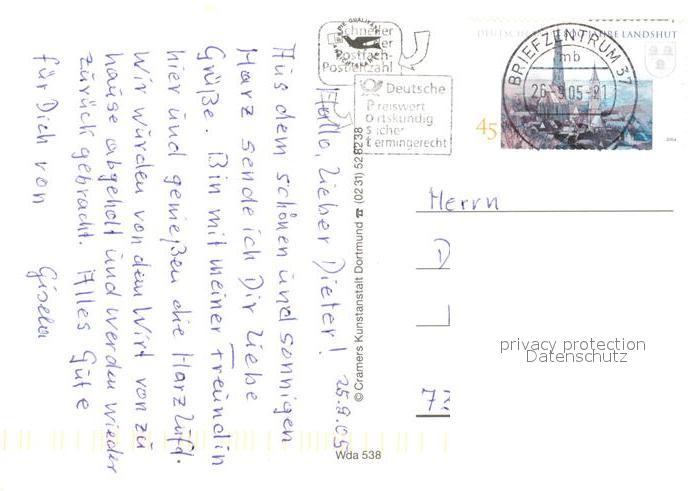 Hallo, lieber Dieter!
25.9.05
Aus dem schönen und sonnigen
Harz sende ich Dir liebe
Grüße. Bin mit meiner Freundin
hier und genießen die Harzluft.
Wir wurden von dem Wirt von zu
hause abgeholt und werden wieder
zurück gebracht. Alles Gute
für Dich von
Gisela
© Cramers Kunstanstalt Dortmund ☎ (0231) 528238
Wda 538
Schneller
Postfach-
Postleitzahl
Deutsche
Preiswert
ortskundig
sicher
termingerecht
BRIEFZENTRUM 37
mb
26.9.05-21
LANDSHUT
45
Herrn
D
7
privacy protection
Datenschutz